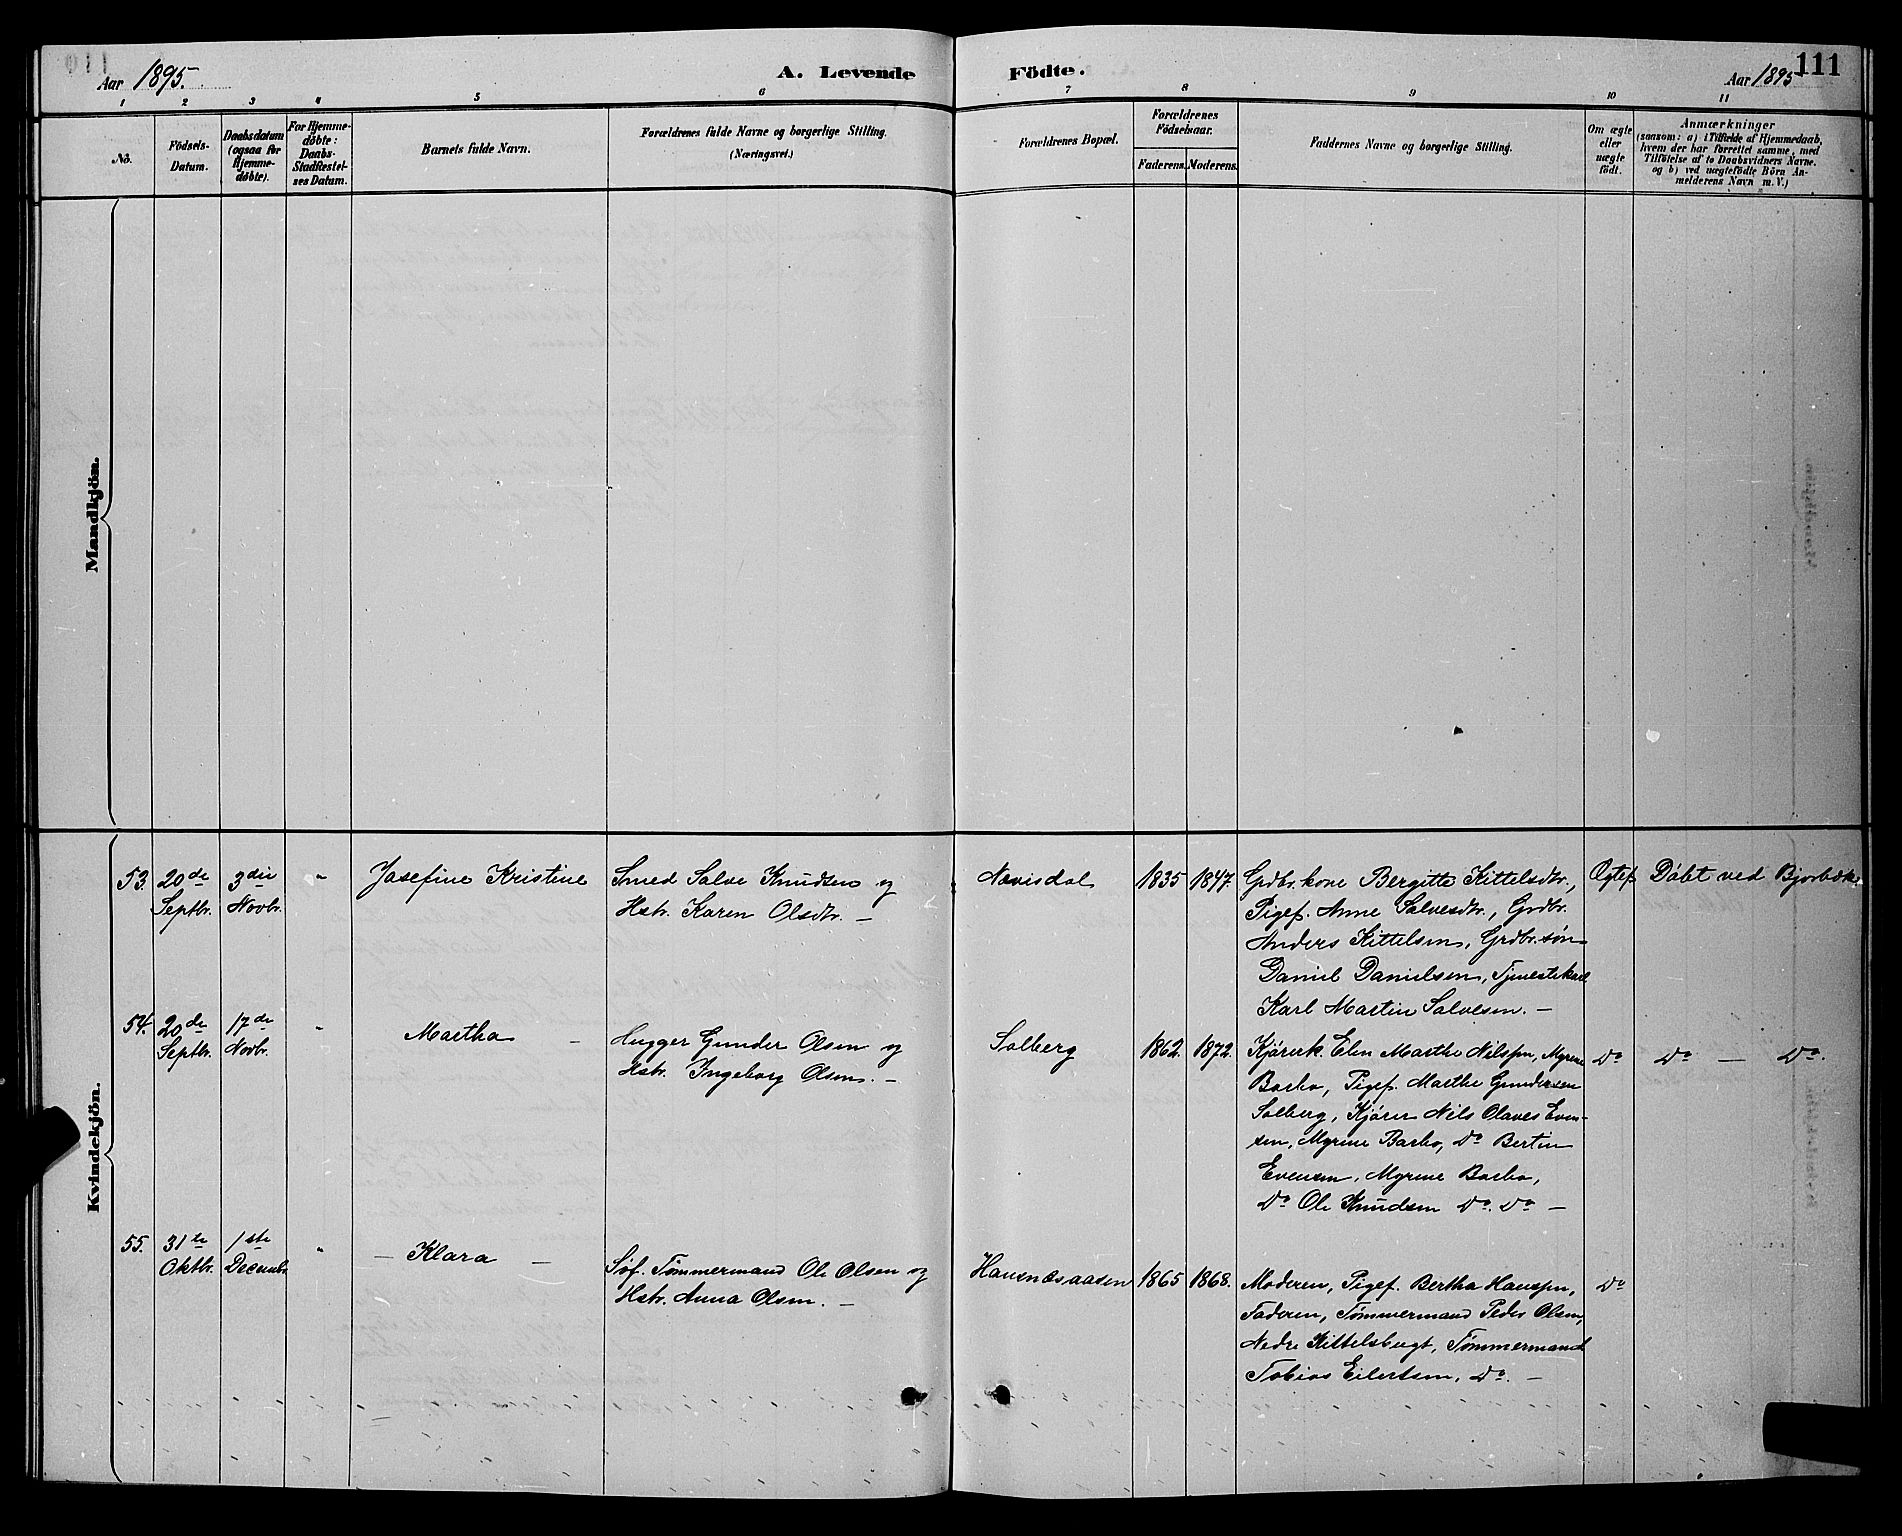 Aar 1895.
A. Levende
Födte.
Aar 1895
111
1 2 3 4 5 6 7 8 9 10 11
No.
Födsels-
Datum.
Daabsdatum
(ogsaa for
Hjemme-
döbte).
For Hjemme-
döbte:
Daabs-
Stadfæstel-
ses Datum.
Barnets fulde Navn.
Forældrenes fulde Navne og borgerlige Stilling.
(Næringsvei.)
Forældrenes Bopæl.
Forældrenes
Födselsaar.
Faderens.
Moderens.
Faddernes Navne og borgerlige Stilling.
Om ægte
eller
uægte
födt.
Anmærkninger
(saasom: a) i Tilfælde af Hjemmedaab,
hvem der har forrettet samme, med
Tilföielse af to Daabsvidners Navne.
og b) ved uægtefödte Börn An-
melderens Navn m. V.)
Mandkjön.
Kvindekjön.
53.
20de
Septbr.
3die
Novbr.
"
Josefine Kristine
Smed Salve Knudsen og
Hstr. Karen Olsdtr. —
Nævisdal
1835
1847.
Grdbr.kone Bergitte Kittelsdtr.,
Pigef. Anne Salvesdtr., Grdbr.
Anders Kittelsen, Grdbr.søn
Daniel Danielsen, Tjenestekarl
Karl Martin Salvesen. —
Ægtef
Døbt ved Bjorbæk.
54.
20de
Septbr.
17de
Novbr.
"
Martha —
Hugger Gunder Olsen og
Hstr. Ingeborg Olsen. —
Solberg
1862.
1872.
Kjørerk. Elen Marthe Nilssen, Myrene
Barbo, Pigef. Marthe Gundersen
Solberg, Kjører Nils Olaves Even-
sen, Myrene Barbo, Do Bertin
Evensen, Myrene Barbo,
Do Ole Knudsen Do. Do —
Do
Do — Do.
55.
31te
Oktbr.
1ste
Decembr.
"
— Klara —
Søf. Tømmermand Ole Olsen og
Hstr. Anna Olsen. —
Hansnæsaasen
1865
1868.
Moderen, Pigef. Bertha Hanssen,
Faderen, Tømmermand Peder Olsen,
Nedre Kittelsbugt, Tømmermand
Tobias Eilertsen, Do. —
Do